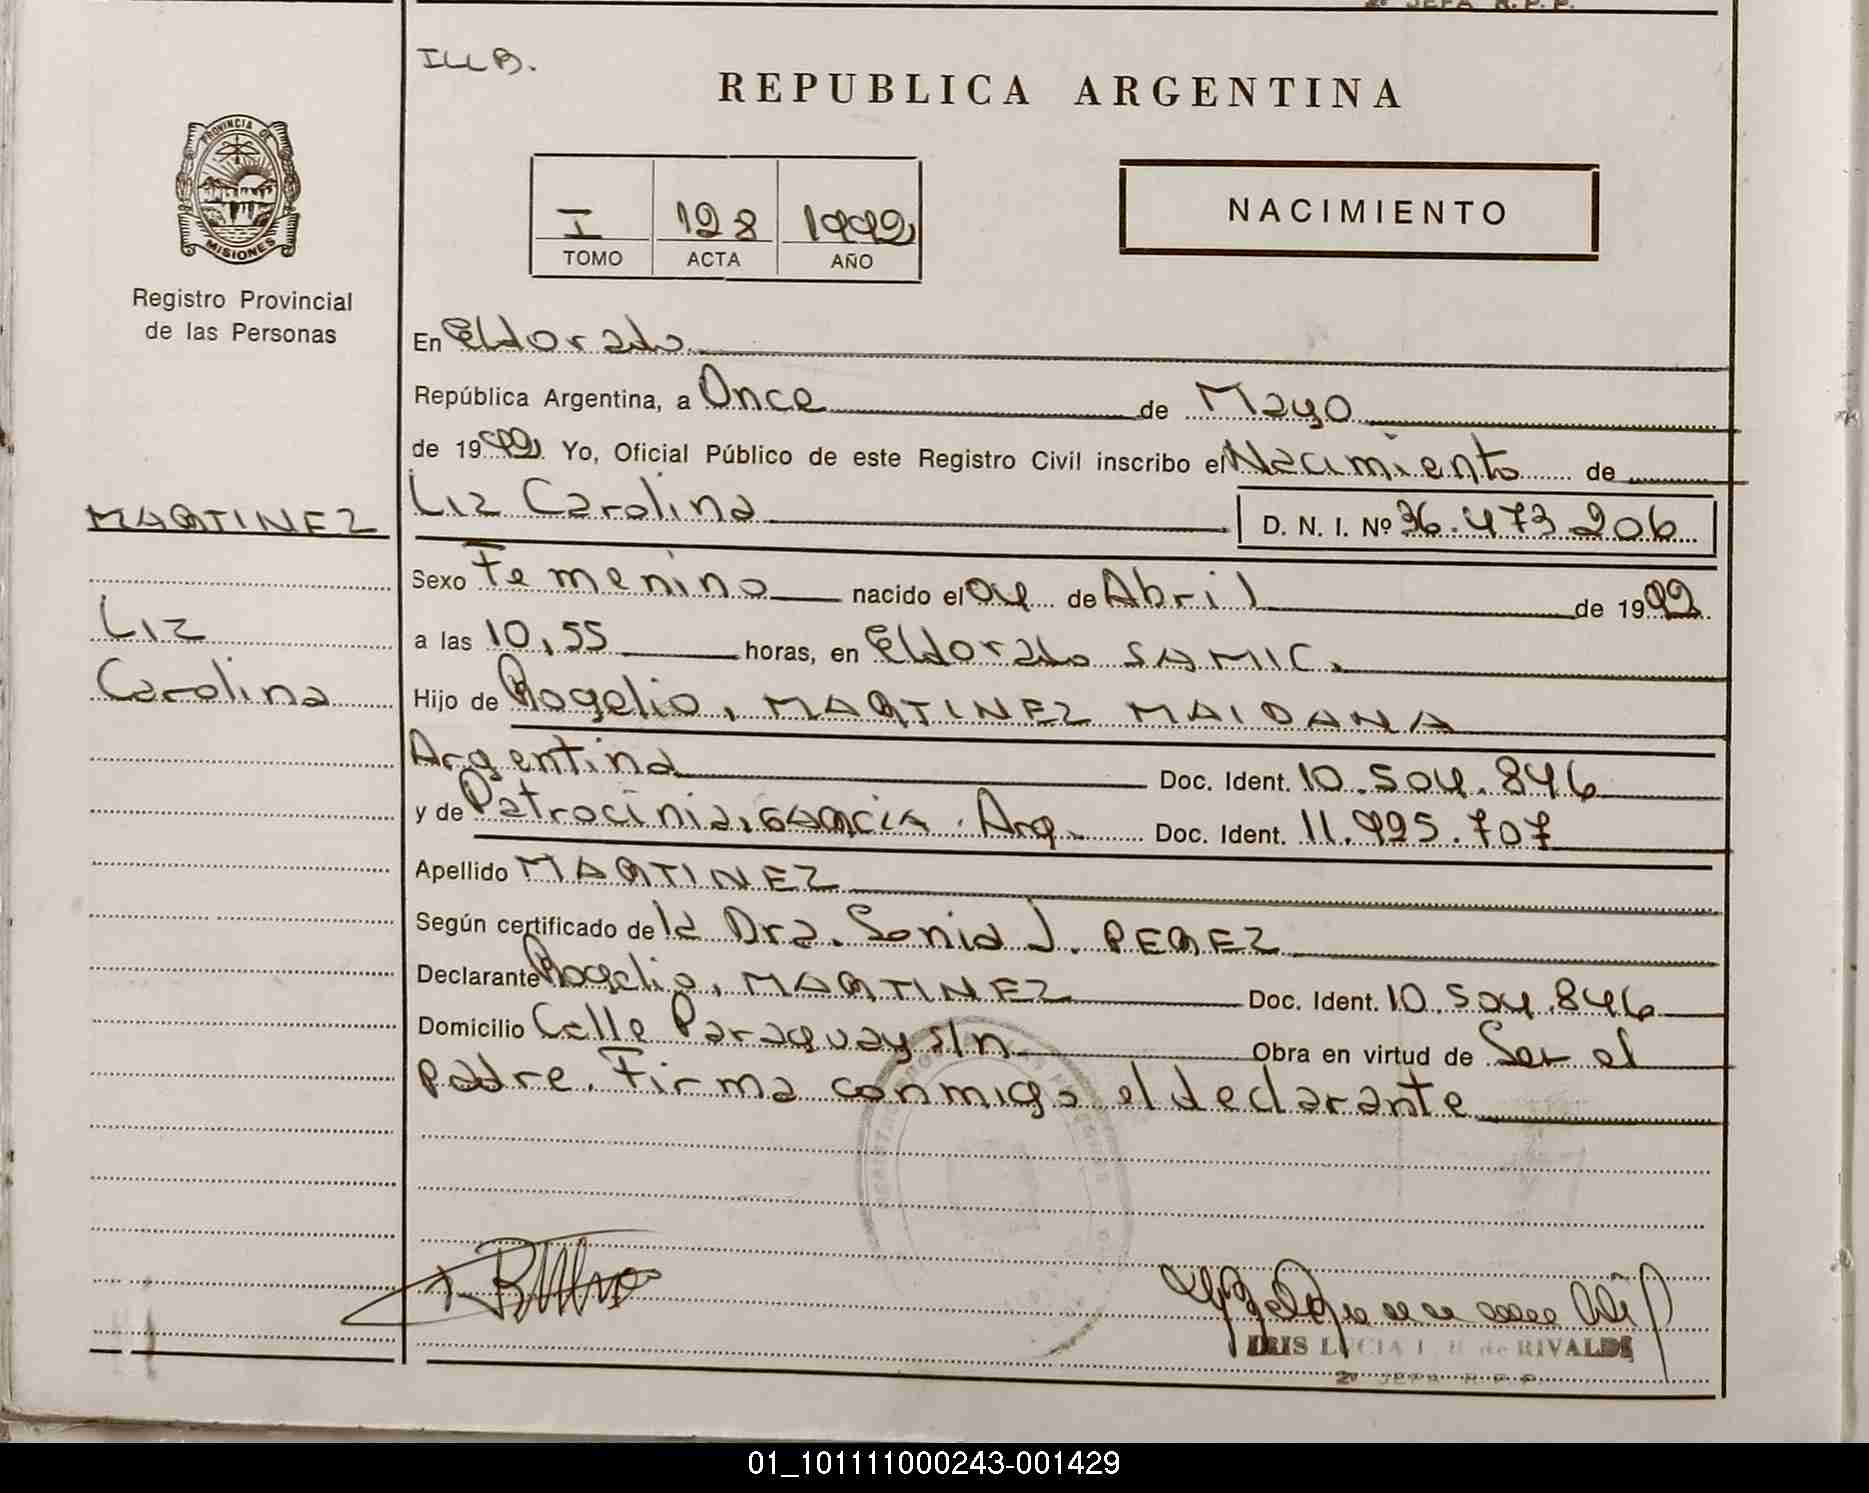 2º JEFA R. P. P.
ILLB.
REPUBLICA ARGENTINA
PROVINCIA DE
MISIONES
Registro Provincial
de las Personas
I 128 1992
TOMO ACTA AÑO
NACIMIENTO
En Eldorado
República Argentina, a Once de Mayo
de 1992 Yo, Oficial Público de este Registro Civil inscribo el Nacimiento de
MARTINEZ
Liz Carolina D. N. I. Nº 36.473.206
Sexo Femenino nacido el 04 de Abril de 1992
Liz
a las 10,55 horas, en Eldorado SAMIC.
Carolina
Hijo de Rogelio, MARTINEZ MAIDANA
Argentina Doc. Ident. 10.504.846
y de Patrocinia, GARCIA. Arg. Doc. Ident. 11.995.707
Apellido MARTINEZ
Según certificado de la Dra. Sonia J. PEREZ
Declarante Rogelio, MARTINEZ Doc. Ident. 10.504.846
Domicilio Calle Paraguay s/n Obra en virtud de Ser el
padre. Firma conmigo el declarante
IRIS LUCIA de RIVALDI
2º JEFA R. P. P.
01_101111000243-001429